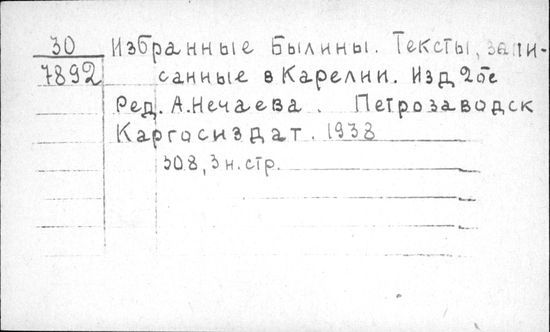 30 Избранные Былины. Тексты, запи-
7892 санные в Карелии. Изд 2ое
Ред. А.Нечаева. Петрозаводск
Каргосиздат. 1938
308, 3 н. стр.